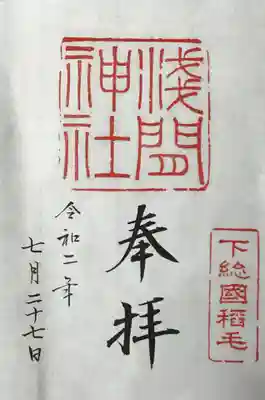 浅間
神社
下総國稻毛
奉拝
令和二年
七月二十七日